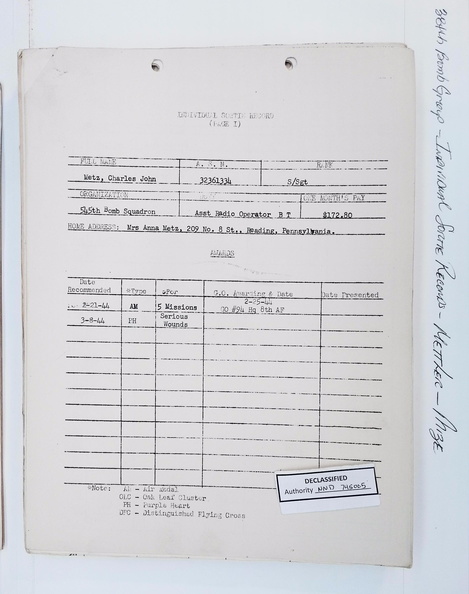 INDIVIDUAL SORTIE RECORD
(PAGE 1)
FULL NAME A. S. N. RANK
Metz, Charles John 32361334 S/Sgt
ORGANIZATION DUTY ONE MONTH'S PAY
545th Bomb Squadron Asst Radio Operator B T $172.80
HOME ADDRESS: Mrs Anna Metz, 209 No. 8 St., Reading, Pennsylvania.
AWARDS
Date Recommended *Type *For G.O. Awarding & Date Date Presented
2-21-44 AM 5 Missions 2-25-44
GO #94 Hq 8th AF
3-8-44 PH Serious
Wounds
*Note: AM - Air Medal
OLC - Oak Leaf Cluster
PH - Purple Heart
DFC - Distinguished Flying Cross
DECLASSIFIED
Authority NND 745005
384th Bomb Group - Individual Sortie Record - Mettler - Mize